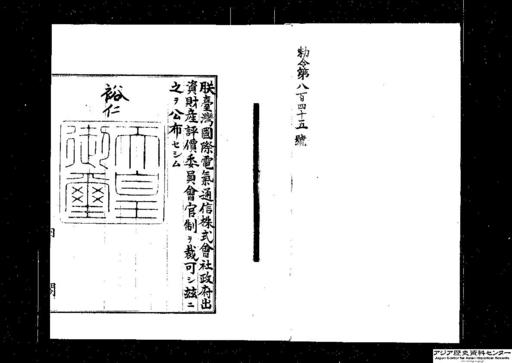 勅令第八百四十五號
朕臺灣國際電氣通信株式會社政府出
資財産評價委員會官制ヲ裁可シ茲ニ
之ヲ公布セシム
裕仁
天皇御璽
内閣
アジア歴史資料センター
Japan Center for Asian Historical Records